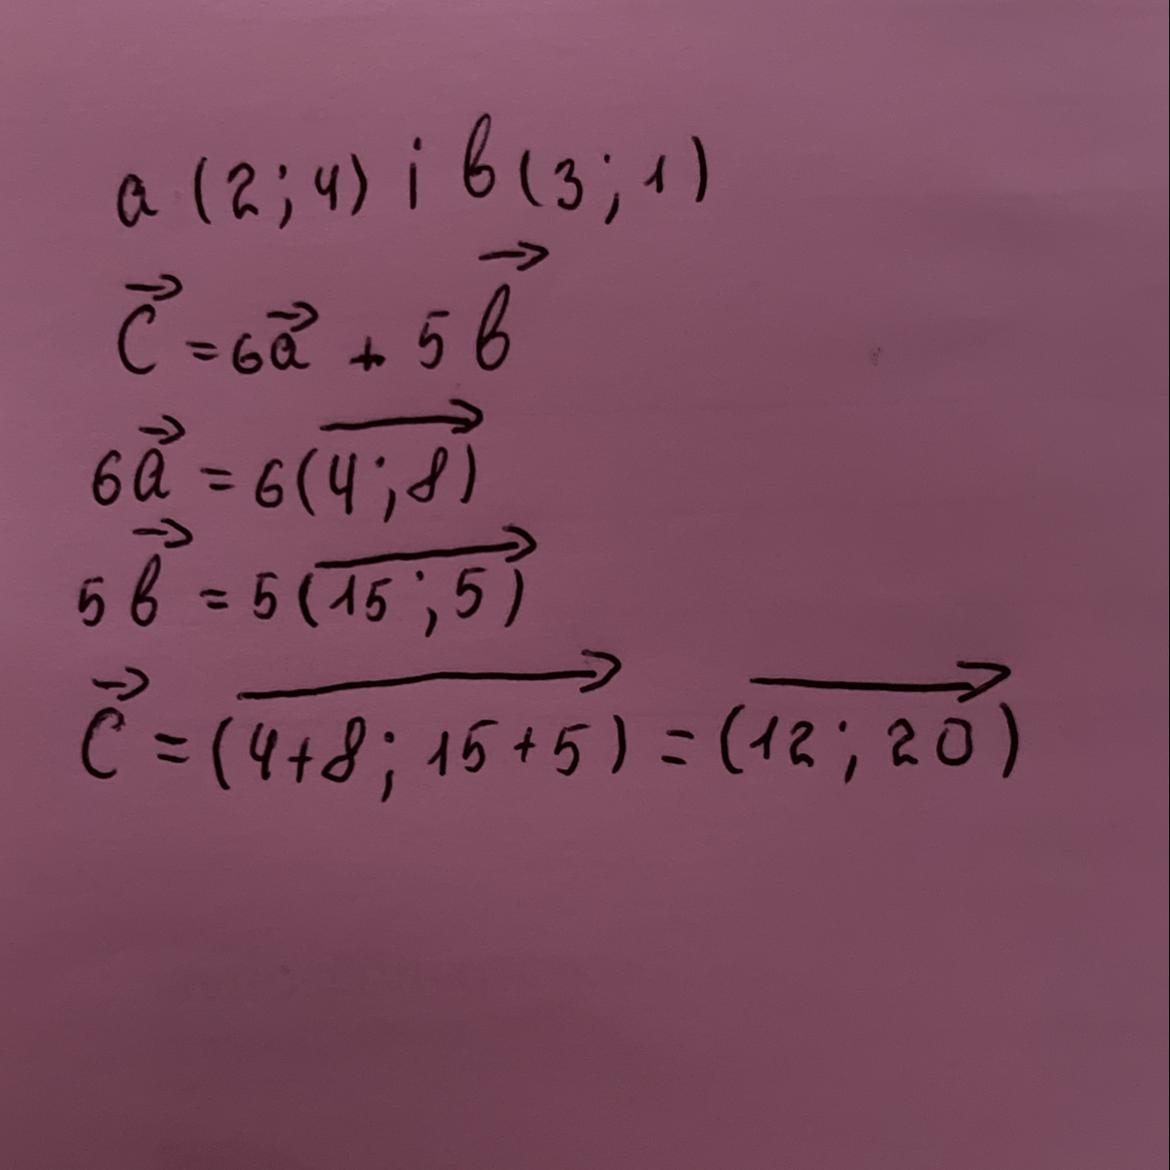 a (2; 4) і b (3; 1)
→c = 6→a + 5→b
6→a = 6(4; 8)
5→b = 5(15; 5)
→c = (4+8; 15+5) = (12; 20)